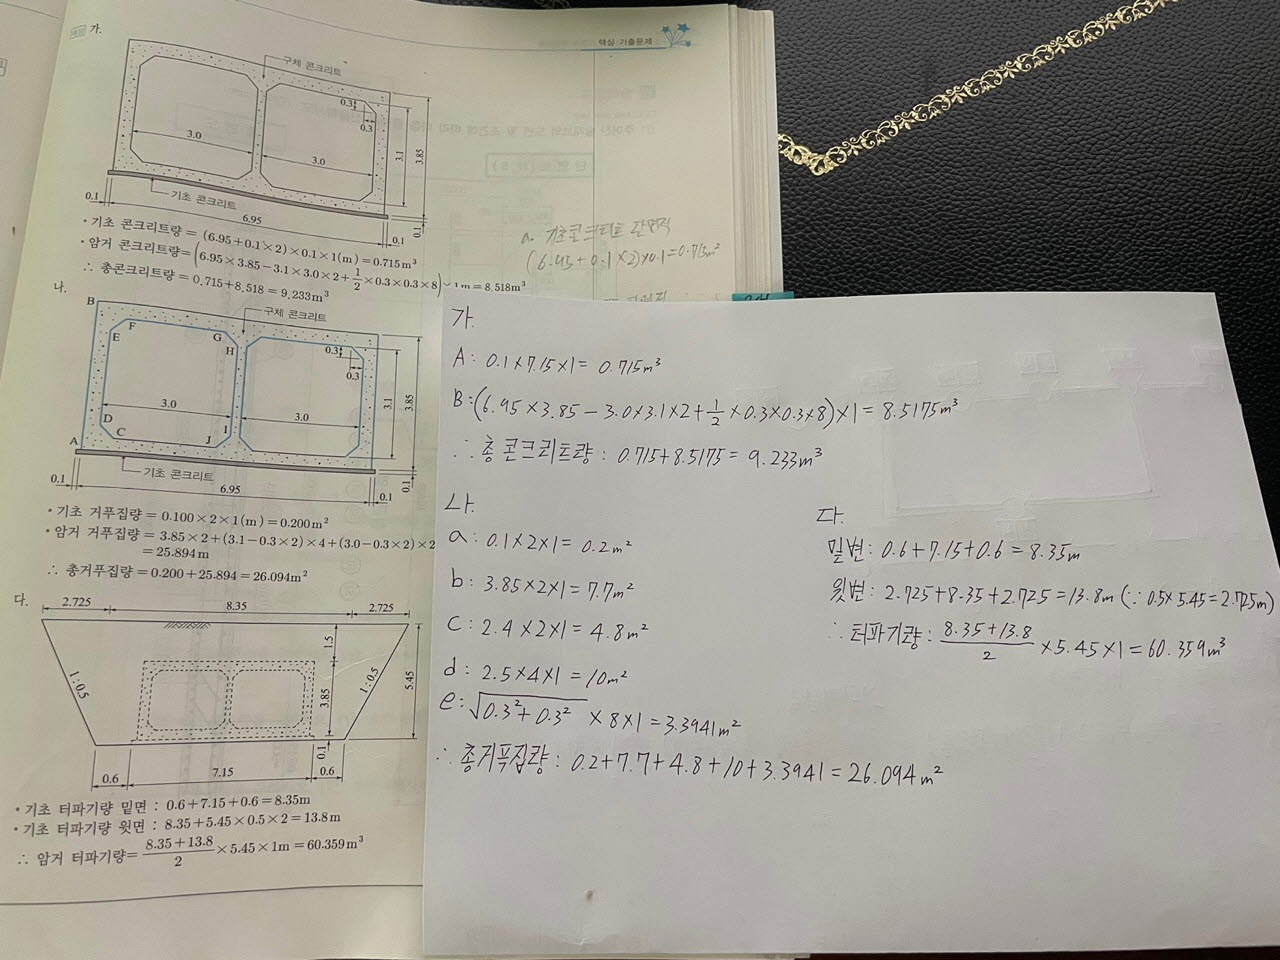 핵심 기출문제
해설 가.
구체 콘크리트
0.3
0.3
3.0
3.0
3.1
3.85
기초 콘크리트
0.1
6.95
0.1
0.1
• 기초 콘크리트량 = (6.95+0.1×2)×0.1×1(m) = 0.715m³
• 암거 콘크리트량 = (6.95×3.85−3.1×3.0×2+1/2×0.3×0.3×8)×1m = 8.518m³
∴ 총콘크리트량 = 0.715+8.518 = 9.233m³
a. 기초콘크리트 단면적
(6.95+0.1×2)×0.1=0.715m²
나.
구체 콘크리트
B
F
G
E
H
0.3
0.3
3.0
3.0
3.1
3.85
D
C
I
J
A
기초 콘크리트
0.1
6.95
0.1
0.1
• 기초 거푸집량 = 0.100×2×1(m) = 0.200m²
• 암거 거푸집량 = 3.85×2+(3.1−0.3×2)×4+(3.0−0.3×2)×2
= 25.894m
∴ 총거푸집량 = 0.200+25.894 = 26.094m²
다.
2.725
8.35
2.725
1.5
1:0.5
1:0.5
3.85
5.45
0.1
0.6
7.15
0.6
• 기초 터파기량 밑면 : 0.6+7.15+0.6 = 8.35m
• 기초 터파기량 윗면 : 8.35+5.45×0.5×2 = 13.8m
∴ 암거 터파기량 = (8.35+13.8)/2 ×5.45×1m = 60.359m³
가.
A : 0.1×7.15×1= 0.715m³
B : (6.95×3.85−3.0×3.1×2+1/2×0.3×0.3×8)×1= 8.5175m³
∴ 총 콘크리트량 : 0.715+8.5175= 9.233m³
나.
a : 0.1×2×1= 0.2m²
b : 3.85×2×1=7.7m²
c : 2.4×2×1= 4.8m²
d : 2.5×4×1=10m²
e : √0.3²+0.3² ×8×1=3.3941m²
∴ 총거푸집량 : 0.2+7.7+4.8+10+3.3941=26.094m²
다.
밑변 : 0.6+7.15+0.6=8.35m
윗변 : 2.725+8.35+2.725=13.8m (∵ 0.5×5.45=2.725m)
∴ 터파기량 : (8.35+13.8)/2 ×5.45×1=60.359m³